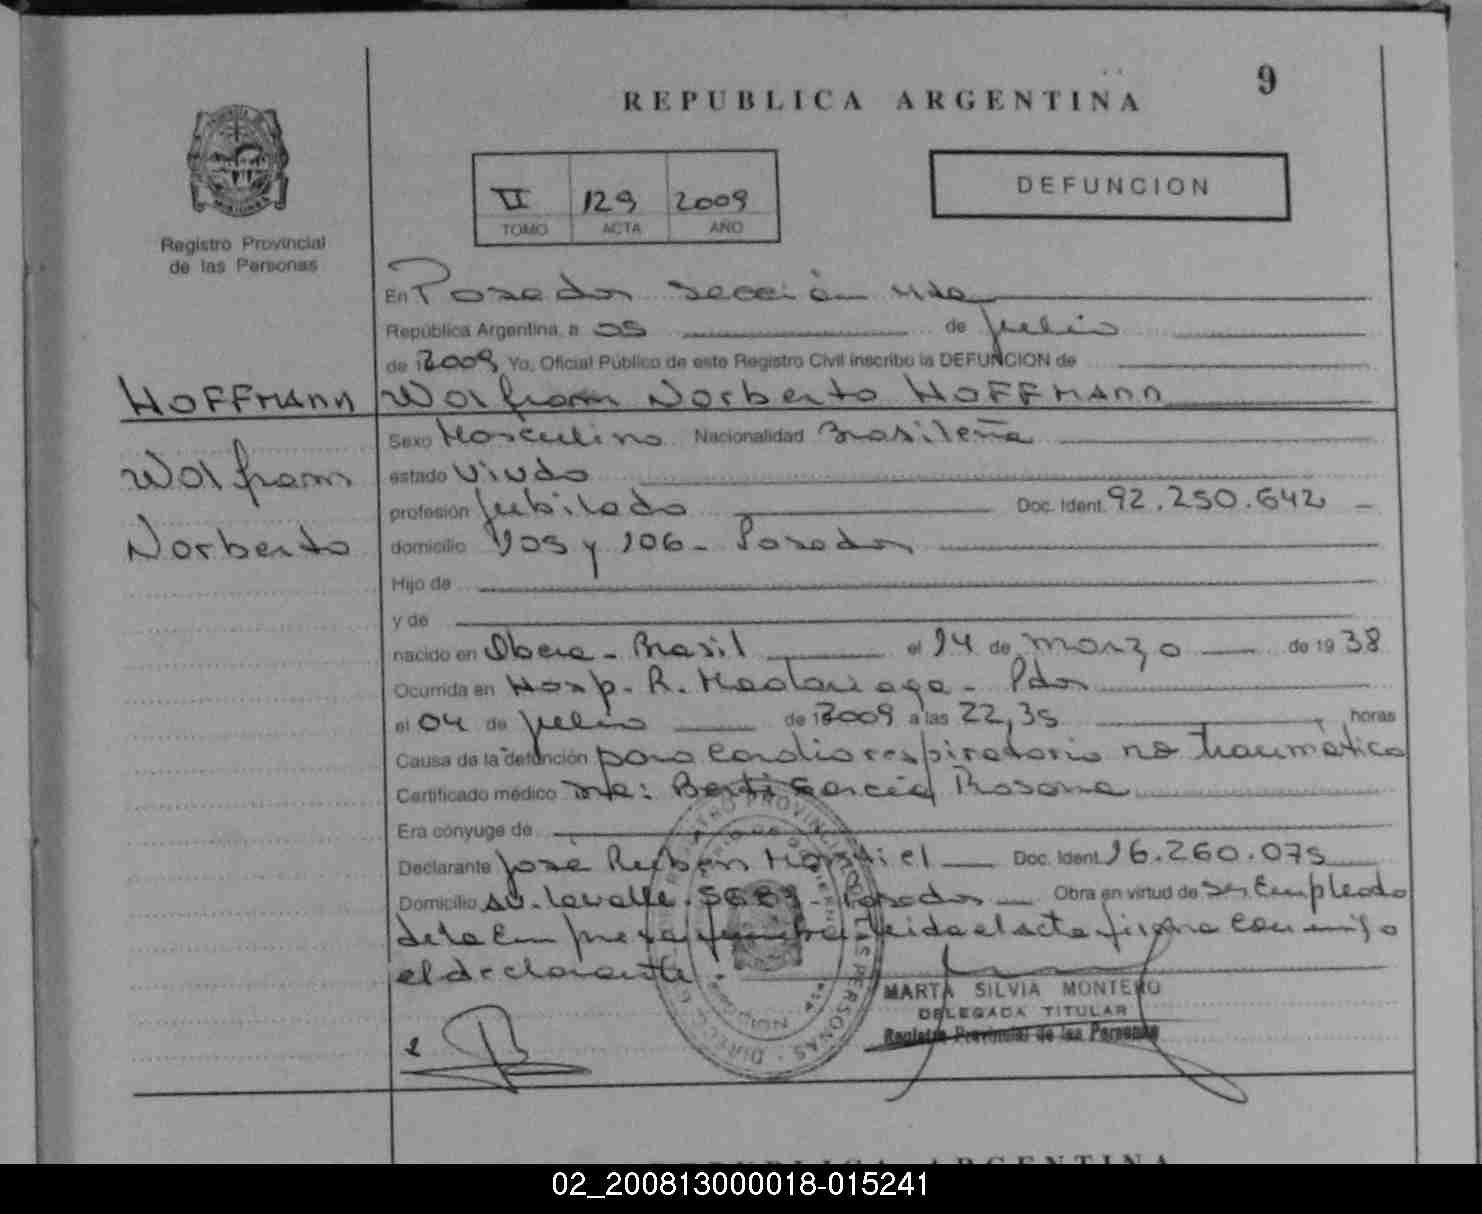 9
REPUBLICA ARGENTINA
VI 129 2009
TOMO ACTA AÑO
DEFUNCION
Registro Provincial
de las Personas
En Posadas sección
República Argentina, a 05 de Julio
de 2009 Yo, Oficial Público de este Registro Civil inscribo la DEFUNCION de
HOFFMANN
Wolfram Norberto HOFFMANN
Wolfram
Norberto
Sexo Masculino Nacionalidad Brasileña
estado Viudo
profesión Jubilado Doc. Ident. 92.250.642
domicilio 105 y 106 - Posadas
Hijo de
y de
nacido en - Brasil el 14 de marzo de 1938
Ocurrida en Hosp. R. Madariaga - Pdas
el 04 de julio de 2009 a las 22,35 horas
Causa de la defunción paro cardiorespiratorio no traumático
Certificado médico García Rosana
Era cónyuge de
Declarante José Rubén Doc. Ident. 16.260.075
Domicilio Av. Lavalle - Posadas Obra en virtud de ser Empleado
de la Empresa leida el acta firma conmigo
el declarante
MARTA SILVIA MONTERO
DELEGADA TITULAR
Registro Provincial de las Personas
REPUBLICA ARGENTINA
02_200813000018-015241